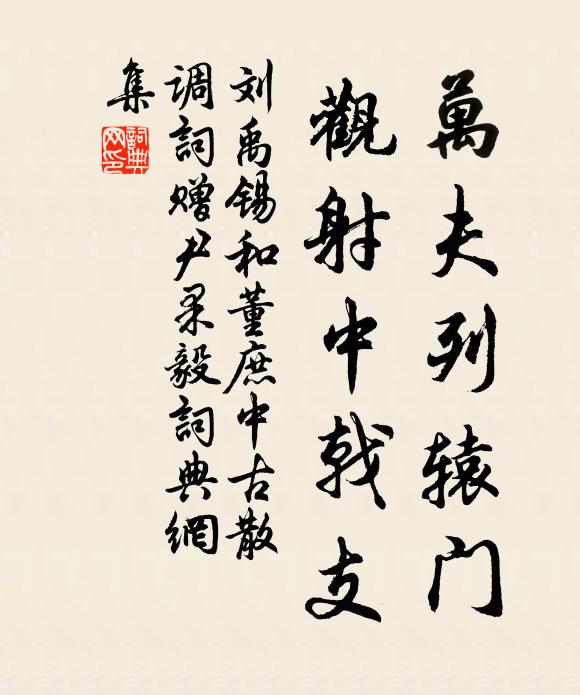 萬夫列辕门
觀射中戟支
刘禹锡和董庶中古散
调詞赠尹果毅詞典網
集
詞典網印